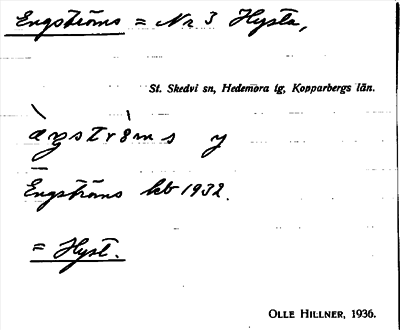 Engströms = Nr 3 Hysta,
St. Skedvi sn, Hedemora lg, Kopparbergs län.
y
Engströms kb 1932.
= Hyst.
OLLE HILLNER, 1936.